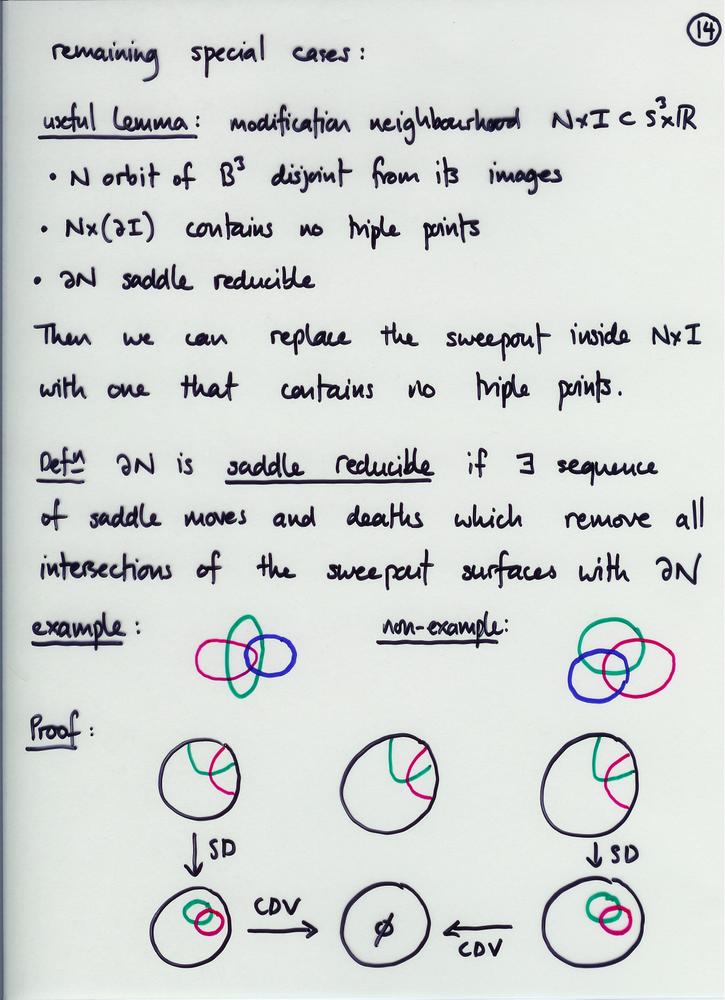 14
remaining special cases:
useful Lemma: modification neighbourhood N×I ⊂ S³×ℝ
• N orbit of B³ disjoint from its images
• N×(∂I) contains no triple points
• ∂N saddle reducible
Then we can replace the sweepout inside N×I
with one that contains no triple points.
Defⁿ ∂N is saddle reducible if ∃ sequence
of saddle moves and deaths which remove all
intersections of the sweepout surfaces with ∂N
example: non-example:
Proof:
↓ SD ↓ SD
CDV → ∅ ← CDV